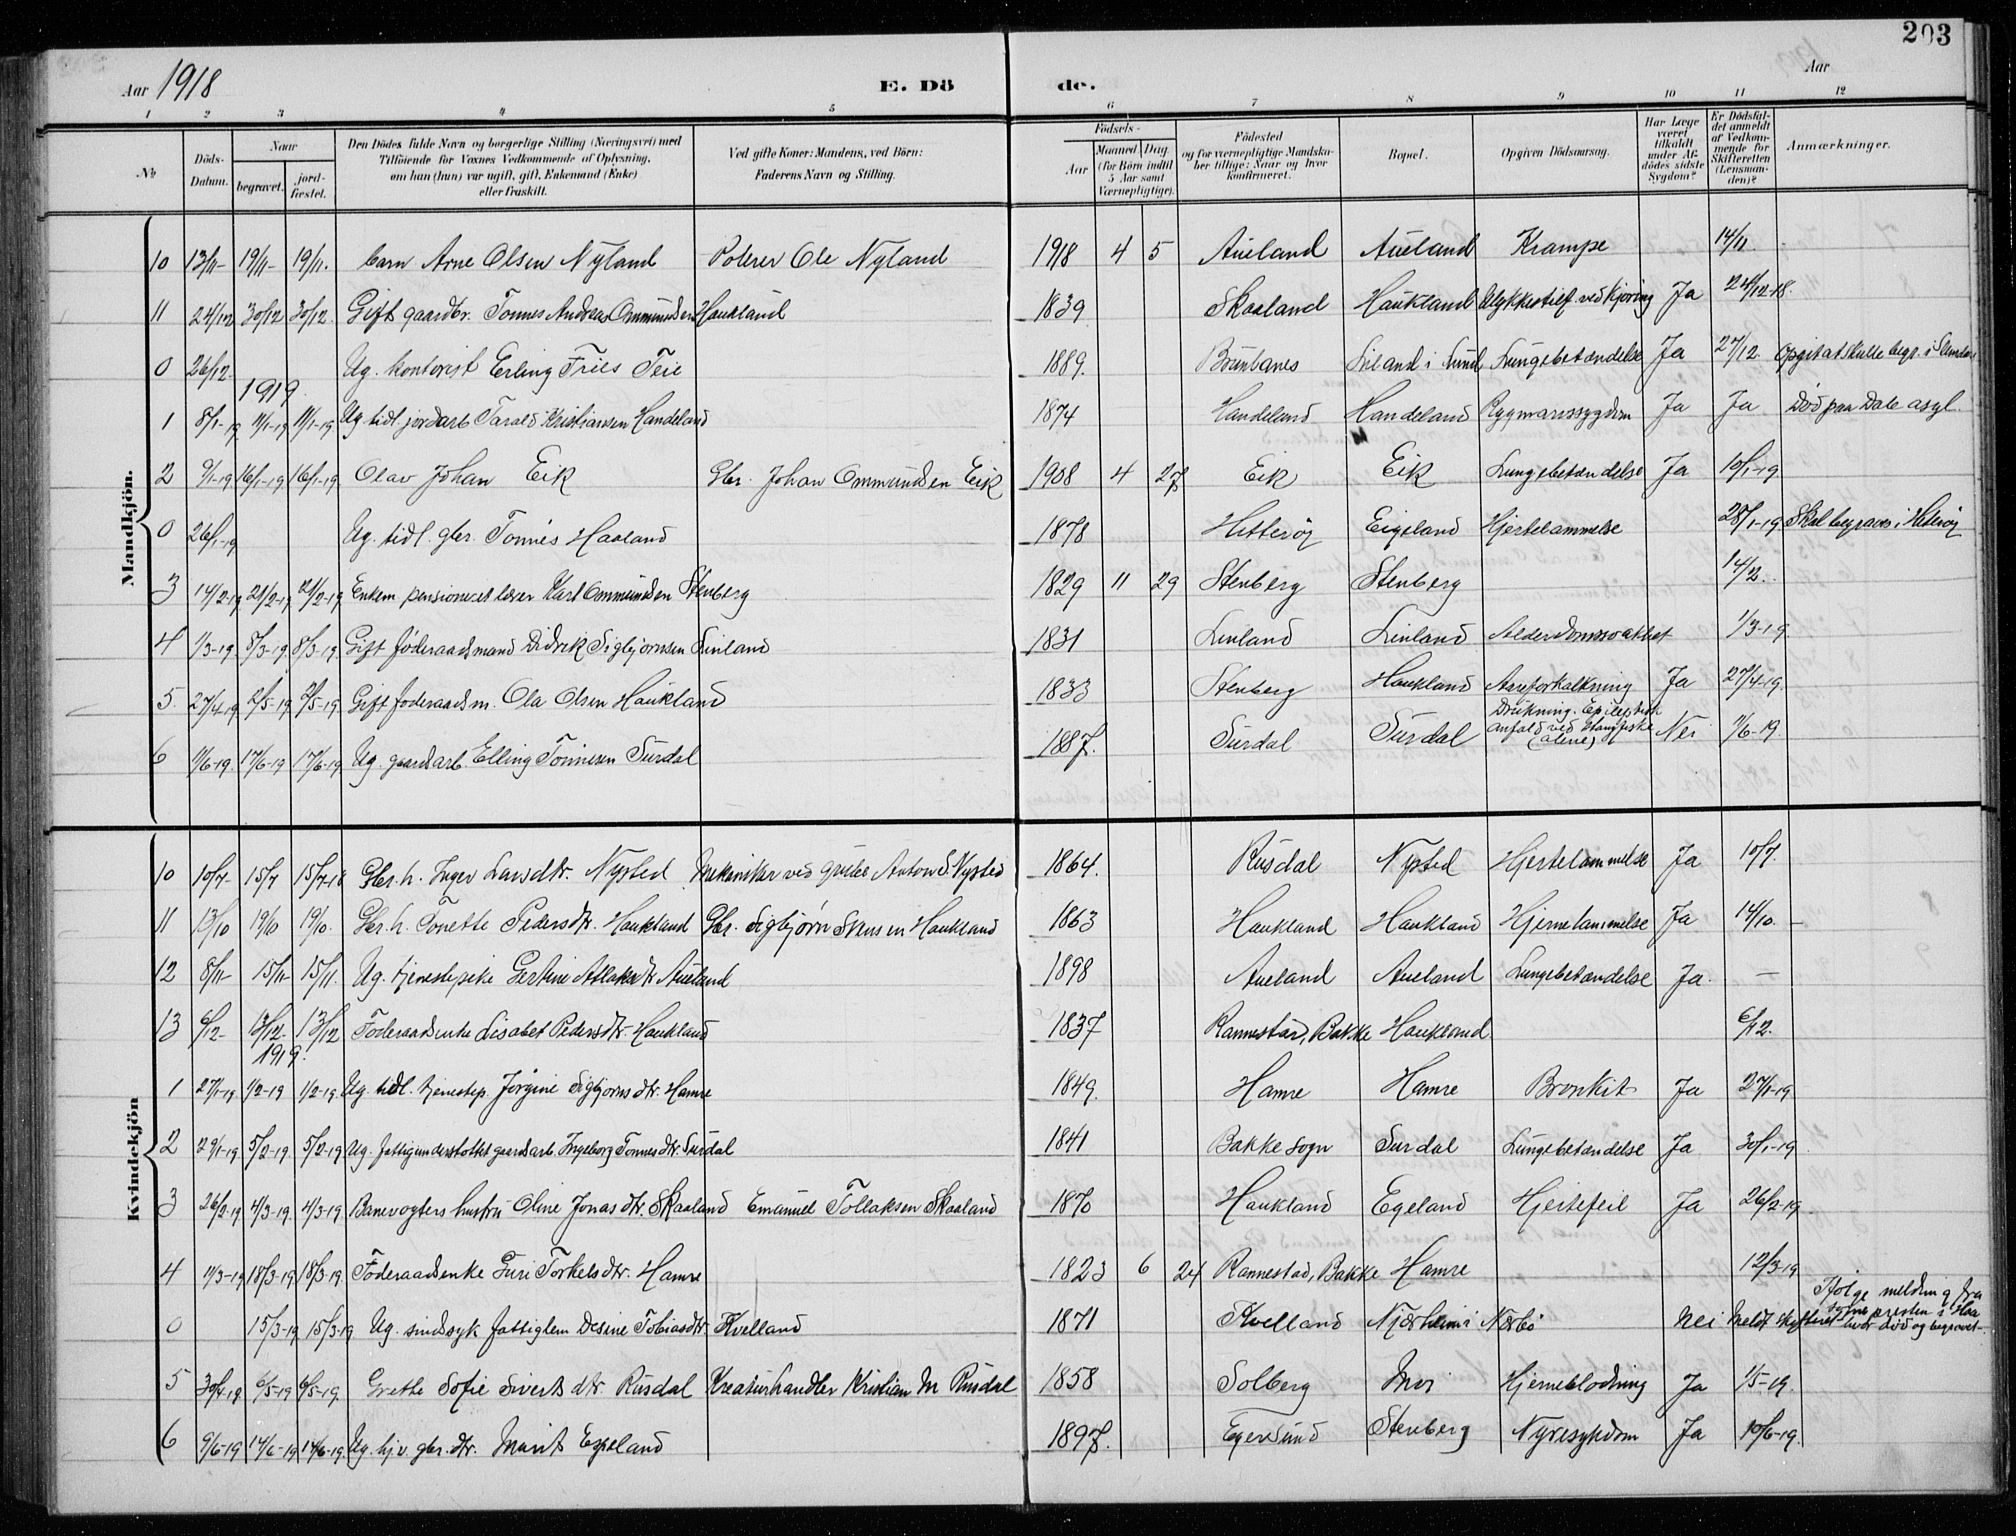 203
Aar 1918 E. Dö de. Aar
1 2 3 4 5 6 7 8 9 10 11 12
No
Döds-Datum.
Naar
begravet. jord-fæstet.
Den Dödes fulde Navn og borgerlige Stilling (Næringsvei) med
Tilföiende for Voxnes Vedkommende af Oplysning,
om han (hun) var ugift, gift, Enkemand (Enke)
eller fraskilt.
Ved gifte Koner: Mandens, ved Börn:
Faderens Navn og Stilling.
Födsels-
Aar Maaned Dag.
(for Börn indtil
5 Aar samt
Værnepligtige).
Födested
og for værnepligtige Mandska-
ber tillige: Naar og hvor
konfirmeret.
Bopæl.
Opgiven Dödsaarsag.
Har Læge
været
tilkaldt
under Af-
dödes sidste
Sygdom?
Er Dödsfal-
det anmeldt
af Vedkom-
mende for
Skifteretten
(Lensman-
den)?
Anmærkninger.
Mandkjön.
10 13/11- 19/11- 19/11. barn Arne Olsen Nyland Polerer Ole Nyland 1918 4 5 Aueland Aueland Krampe 14/11
11 24/12 30/12 30/12. Gift gaardbr. Tonnes Andreas Ommundsen Haukland 1839 Skaaland Haukland Ulykkestilf ved kjøring Ja 24/12 18.
0 26/12. Ug. kontorist Erling Friis Teie 1889. Brunbanes i Lund Lungebetændelse Ja 27/12. Opgit at skulle begr. i
1919
1 8/1-19 11/1-19 11/1-19 Ug. tidl. jordarb Tarald Kristiansen Handeland 1874 Handeland Handeland Rygmarvssygdom Ja Ja Død paa Dale asyl.
2 9/1-19 16/1-19 16/1-19 Olav Johan Eik Gbr. Johan Ommundsen Eik 1908 4 27 Eik Eik Lungebetændelse Ja 10/1-19
0 26/1-19 Ug. tidl. gbr. Tonnes Haaland 1878 Hitterøy Eigeland Hjertelammelse 28/1-19 Skal begraves i Hiterøy
3 14/2-19 21/2-19 21/2-19 Enkem. pensioneret lærer Karl Ommundsen Stenberg 1829 11 29 Stenberg Stenberg 14/2.
4 1/3-19 8/3-19 8/3-19. Gift føderaadsmand Didrik Sigbjørnsen Linland 1831 Linland Linland Alderdomssvakhet 1/3-19.
5 27/4-19 2/5-19 2/5-19. Gift føderaadsm. Ola Olsen Haukland 1833 Stenberg Haukland Aareforkalkning Ja 27/4-19.
6 11/6-19. 17/6-19 17/6-19 Ug. gaardsarb. Elling Tönnesen Surdal 1887. Surdal Surdal Drukning. Epileptisk
anfald ved stangfiske
(alene) Nei 11/6-19.
Kvindekjön
10 10/7- 15/7 15/7-18 Gbr. h. Inger Larsdtr. Nysted Mekaniker ved Anton S. Nysted 1864. Rusdal Nysted Hjertelammelse Ja 10/7.
11 13/10 19/10 19/10. Gbr. h. Tonette Pedersdtr. Haukland Gbr. Sigbjørn Haukland 1863 Haukland Haukland Hjernelammelse Ja 14/10. -
12 8/11- 15/11- 15/11. Ug. tjenestepike Gertine Atlaksdtr Aueland 1898 Aueland Aueland Lungebetændelse Ja. -
13 6/12- 13/12- 13/12 Föderaadsenke Lisabet Pedersdtr. Haukland 1837 Rannestad, Bakke Haukland. 6/12.
1919.
1 27/1-19. 1/2-19 1/2-19. Ug. tidl. tjenestep. Jörgine Sigbjørnsdtr. Hamre 1849. Hamre Hamre Bronkit Ja 27/1-19
2 29/1-19 5/2-19. 5/2-19. Ug. fattigunderstottet gaardsarb. Ingeborg Tonnesdtr. Surdal 1841 Bakke sogn Surdal Lungebetændelse Ja 30/1-19
3 26/2-19 4/3-19. 4/3-19. Banevogters hustru Oline Jonasdtr. Skaaland Emanuel Tollaksen Skaaland 1870 Haukland Egeland Hjertefeil Ja 26/2-19
4 11/3-19 18/3-19 18/3-19. Föderaadsenke Guri Torkelsdtr. Hamre 1823 6 24 Rannestad, Bakke Hamre 12/3-19
0 15/3-19 15/3-19 Ug. sindssyk fattiglem Desine Tobiasdtr. Kvelland 1871 Kvelland Njærheim i Nærbø Nei Meldt skifteret Ifølge melding fra
sognepresten i Haa
hvor død og begravet.
5 30/4-19. 6/5-19 6/5-19. Grethe Sofie Sivertsdtr. Rusdal Kreaturhandler Kristian M Rusdal 1858 Solberg Moi Hjerneblødning Ja 1/5-19.
6 9/6-19 14/6-19 14/6-19. Ug. hjv. gbr. dtr. Marit Egeland 1897. Egersund Stenberg Nyresykdom Ja 10/6-19.